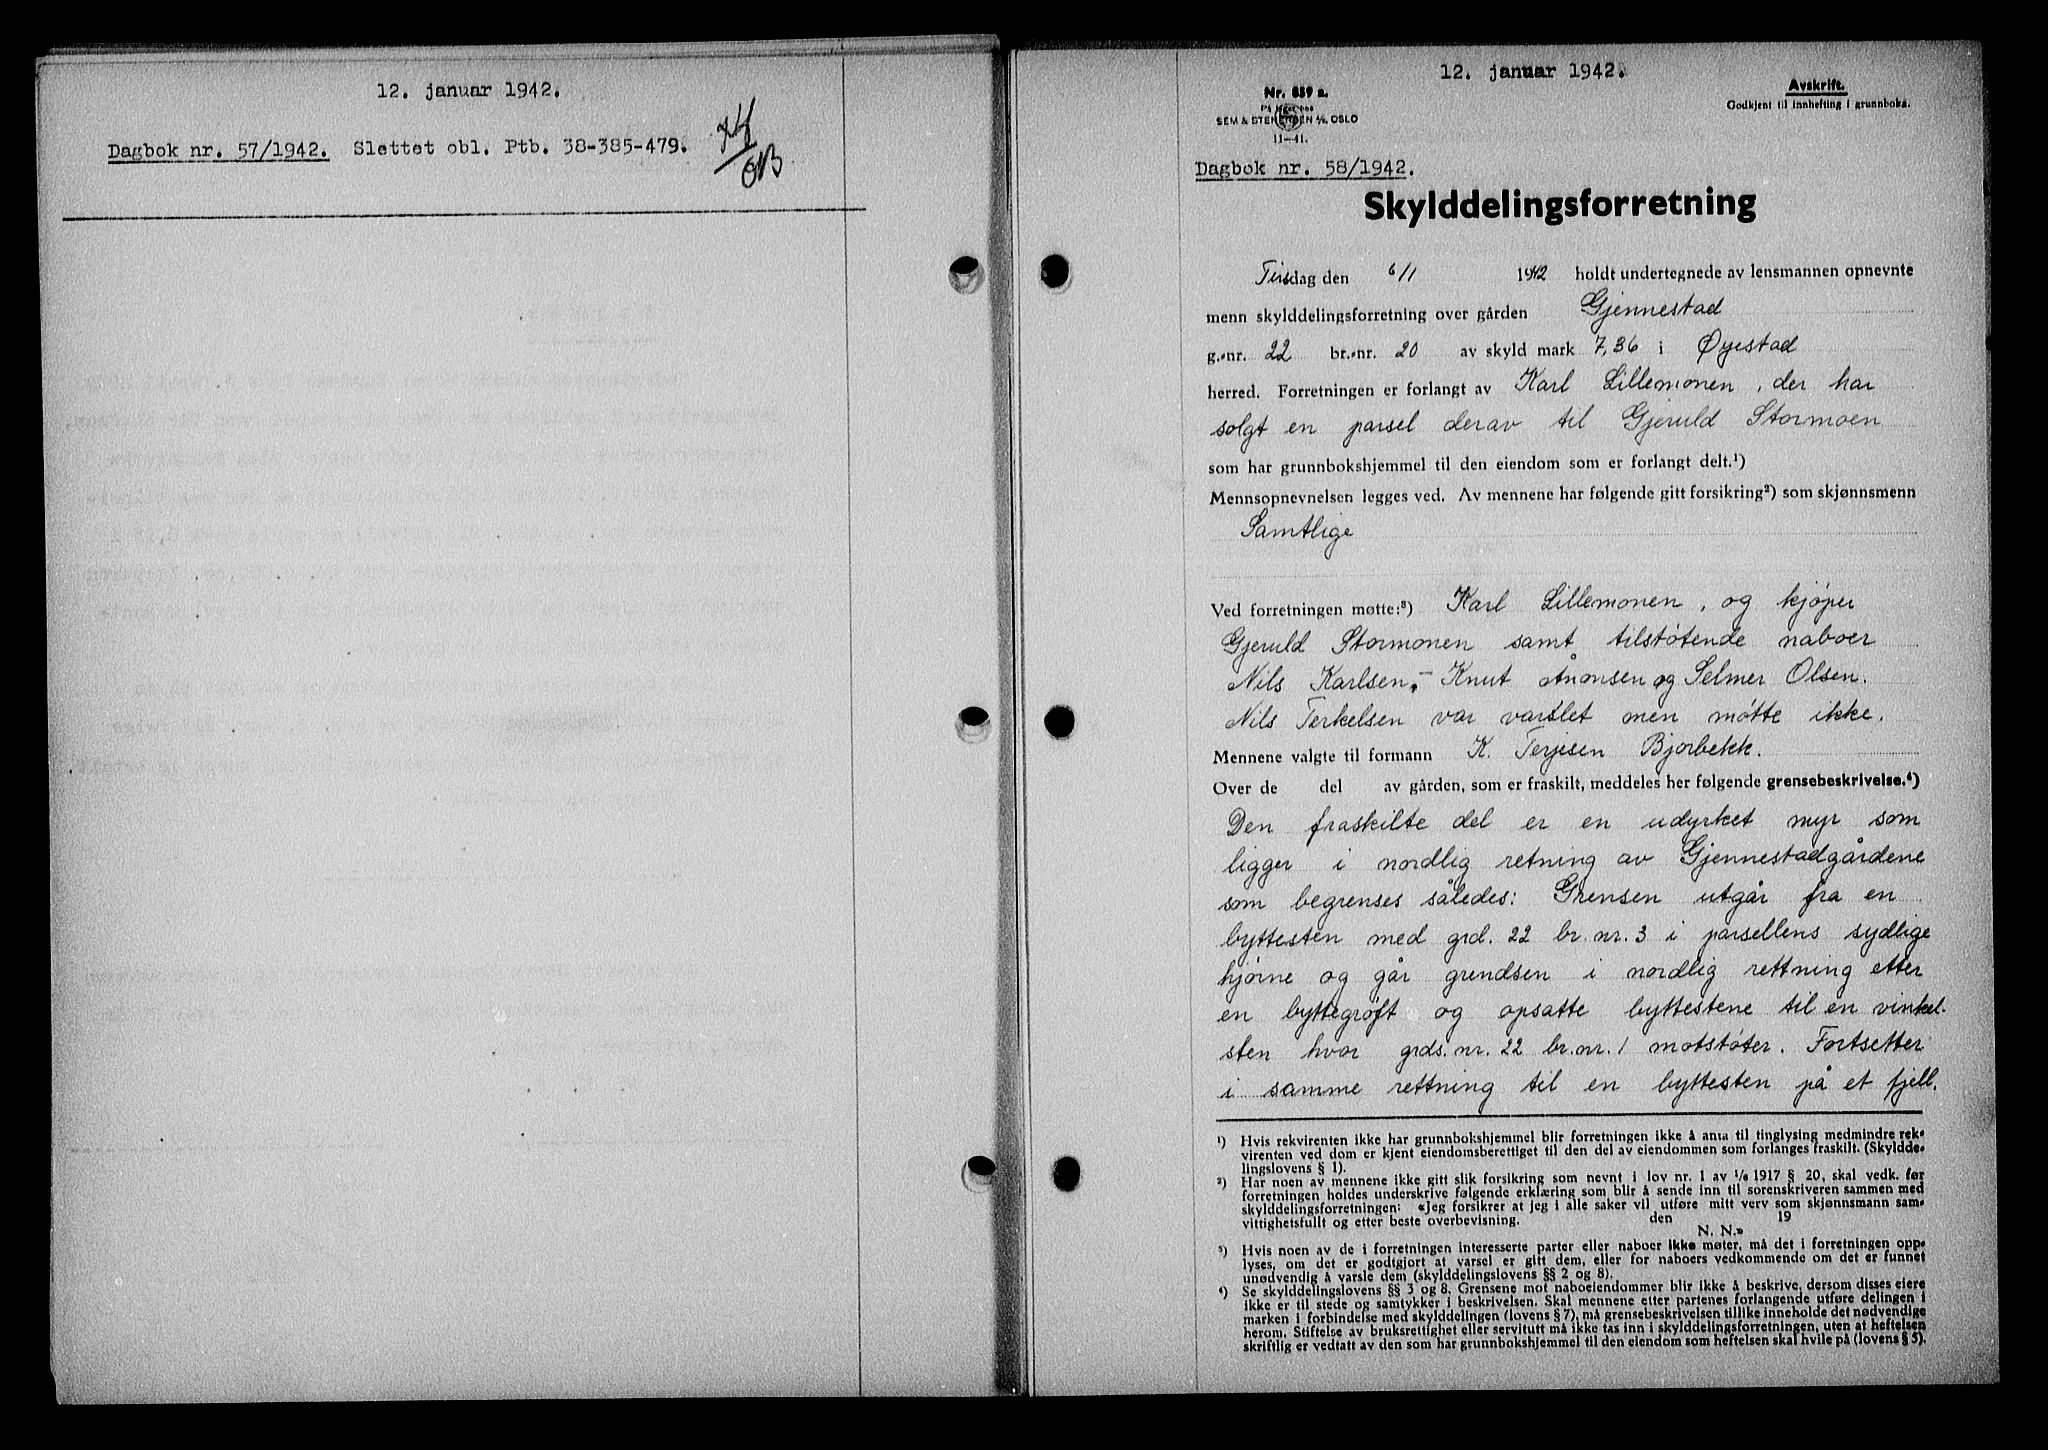 12. januar 1942.
Dagbok nr. 57/1942. Slettet obl. Ptb. 38-385-479.
12. januar 1942.
Nr. 859 a.
SEM & STENERSEN A/S, OSLO
11—41.
Avskrift.
Godkjent til innhefting i grunnboka.
Dagbok nr. 58/1942.
Skylddelingsforretning
Tirsdag den 6/1 1942 holdt undertegnede av lensmannen opnevnte
menn skylddelingsforretning over gården Gjennestad
g.-nr. 22 br.-nr. 20 av skyld mark 7,36 i Øyestad
herred. Forretningen er forlangt av Karl Lillemonen, der har
solgt en parsel derav til Gjeruld Stormoen
som har grunnbokshjemmel til den eiendom som er forlangt delt.¹)
Mennsopnevnelsen legges ved. Av mennene har følgende gitt forsikring²) som skjønnsmenn
Samtlige
Ved forretningen møtte:³) Karl Lillemonen, og kjøper
Gjeruld Stormonen samt tilstøtende naboer
Nils Karlsen, - Knut Aaonsen og Selmer Olsen.
Nils Terkelsen var varslet men møtte ikke.
Mennene valgte til formann K. Terjesen Bjorbekk.
Over de del av gården, som er fraskilt, meddeles her følgende grensebeskrivelse.⁴)
Den fraskilte del er en udyrket myr som
ligger i nordlig retning av Gjennestadgårdene
som begrenses således: Grensen utgår fra en
byttesten med grd. 22 br. nr. 3 i parsellens sydlige
hjørne og går grendsen i nordlig rettning etter
en byttegrøft og opsatte byttestene til en vinkel-
sten hvor grds. nr. 22 br. nr. 1 motstøter. Fortsetter
i samme rettning til en byttesten på et fjell.
¹) Hvis rekvirenten ikke har grunnbokshjemmel blir forretningen ikke å anta til tinglysing medmindre rek-
virenten ved dom er kjent eiendomsberettiget til den del av eiendommen som forlanges fraskilt. (Skyldde-
lingslovens § 1).
²) Har noen av mennene ikke gitt slik forsikring som nevnt i lov nr. 1 av 1/6 1917 § 20, skal vedk. før
forretningen holdes underskrive følgende erklæring som blir å sende inn til sorenskriveren sammen med
skylddelingsforretningen: «Jeg forsikrer at jeg i alle saker vil utføre mitt verv som skjønnsmann sam-
vittighetsfullt og etter beste overbevisning. den 19
N. N.»
³) Hvis noen av de i forretningen interesserte parter eller naboer ikke møter, må det i forretningen opp-
lyses, om det er godtgjort at varsel er gitt dem, eller for naboers vedkommende om det er funnet
unødvendig å varsle dem (skylddelingslovens §§ 2 og 8).
⁴) Se skylddelingslovens §§ 3 og 8. Grensene mot naboeiendommer blir ikke å beskrive, dersom disses eiere
ikke er til stede og samtykker i beskrivelsen. Skal mennene etter partenes forlangende utføre delingen i
marken i forbindelse med skylddelingen (lovens § 7), må grensebeskrivelsen tillike inneholde det nødvendige
herom. Stiftelse av bruksrettighet eller servitutt må ikke tas inn i skylddelingsforretningen, uten at heftelsen
skriftlig er vedtatt av den som har grunnbokshjemmel til den eiendom som heftelsen skal hvile på (lovens § 5).